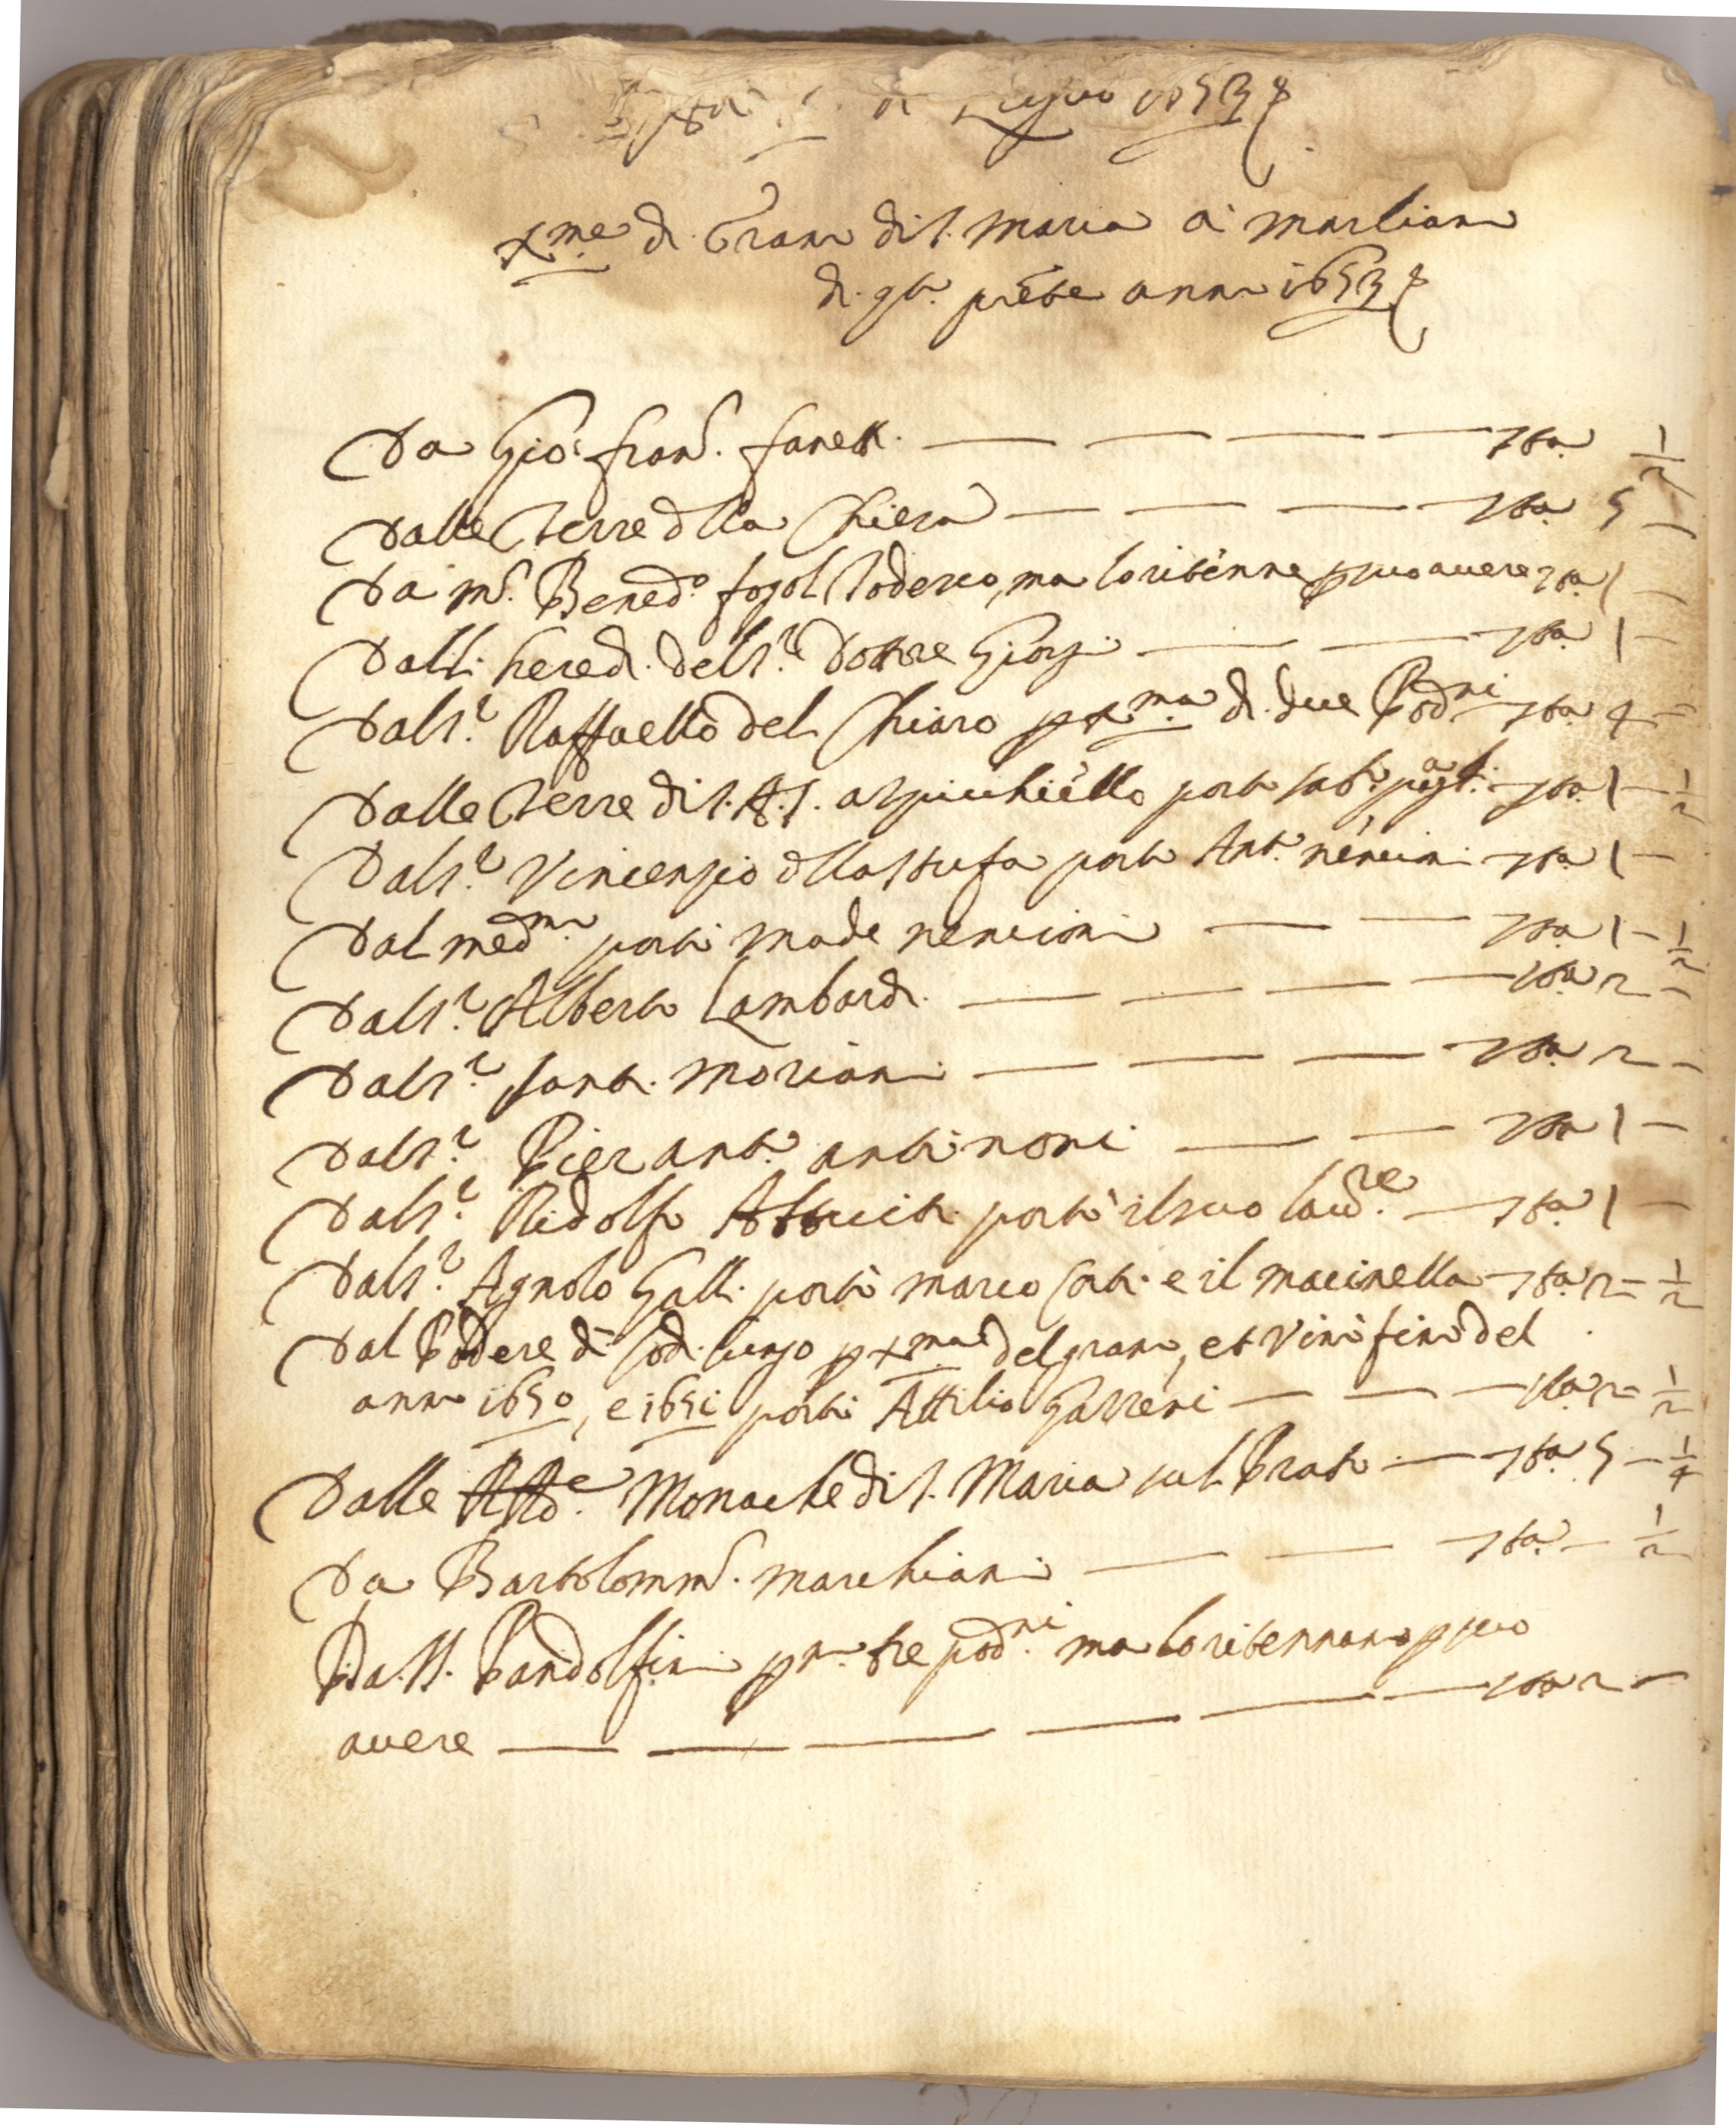 a Luglio 1653
Xme di Grano di S. Maria a Marliano
di qto. prēte anno 1653
Da Gio: Franc. Fanett. — — — — sta. 1/2
Dalle Terre dlla Chiesa — — — — sta. 5 —
Da mr. Bened.o ma lo ritenne p suo avere sta. 1 —
Dalli hered. del Sr. Dottore Giorgi — — sta. 1 —
Dal Sr. Raffaello del Chiaro p Xma di due Podni — sta. 4 —
Dalle Terre di S.A.S. portò — sta. 1 — 1/2
Dal Sr. Vincenzio dlla Stufa portò Ant.o nencioni — sta. 1 —
Dal medmo. portò nencioni — — sta. 1 — 1/2
Dal Sr. Alberto Lambardi — — — — sta. 2 —
Dal Sr. Santi Moriani — — — — sta. 2 —
Dal Sr. Pier Ant.o antinori — — sta. 1 —
Dal Sr. Ridolfo portò il suo lavre. — sta. 1 —
Dal Sr. Agnolo Galli portò marco Corti e il macinella — sta. 2 — 1/2
Dal Podere di lungo p Xma del grano, et vini fini del
anno 1650, e 1651 portò Attilio — — — sta. 2 — 1/2
Dalle Rde. Monache di S. Maria sul Prato — sta. 5 — 1/4
Da Bartolomm. marchiani — — sta. — 1/2
Da SS. Pandolfini p tre podni. ma lo ritennano p suo
avere — — — — — — sta. 2 —